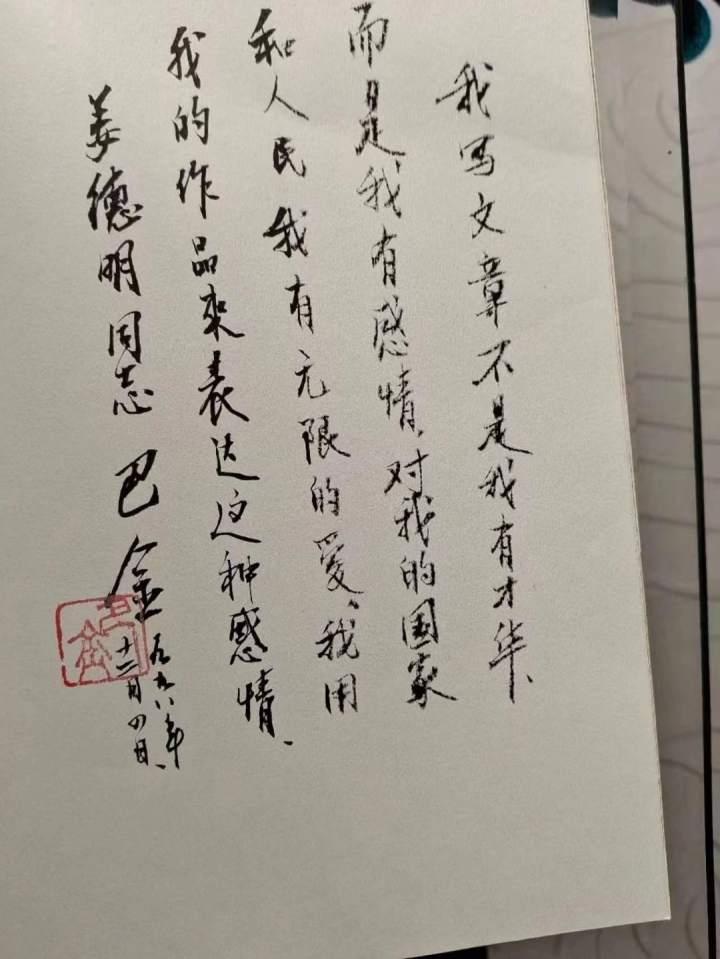 我写文章不是我有才华、
而是我有感情、对我的国家
和人民我有无限的爱、我用
我的作品来表达这种感情、
姜德明同志 巴金
一九九八年
十二月四日、
巴金